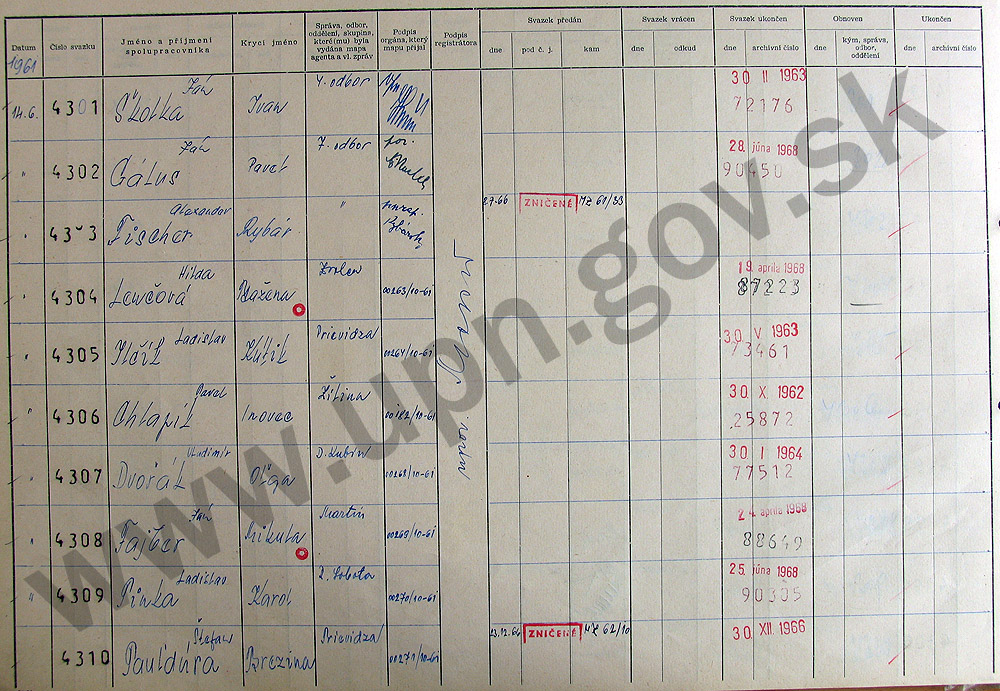 Datum
Číslo svazku
Jméno a příjmení spolupracovníka
Krycí jméno
Správa, odbor, oddělení, skupina, které(mu) byla vydána mapa agenta a vl. zpráv
Podpis orgána, který mapu přijal
Podpis registrátora
Svazek předán
dne
pod č. j.
kam
Svazek vrácen
dne
odkud
Svazek ukončen
dne
archivní číslo
Obnoven
dne
kým, správa, odbor, oddělení
Ukončen
dne
archivní číslo
1961
14.6. 4301 Ján Škotka Ivan 4. odbor 30 II 1963 72176
" 4302 Ján Gálus Pavel 7. odbor por. 28. júna 1968 90450
" 4303 Alexander Fischer Rybár " 2.7.66 ZNIČENÉ MZ 61/33
" 4304 Hilda Lewčová Blažena Zvolen 00263/10-61 19. apríla 1968 87223
" 4305 Ladislav Prievidza 00264/10-61 30 V 1963 73461
" 4306 Pavel Chlapík Inovec Žilina 30 X 1962 25872
" 4307 Vladimír Dvořák Oľga D. Kubín 00268/10-61 30 I 1964 77512
" 4308 Ján Fajber Mikula Martin 00269/10-61 24. apríla 1968 88649
" 4309 Ladislav Pinka Karol R. Sobota 00270/10-61 25. júna 1968 90305
4310 Štefan Pauldúra Brezina Prievidza 00271/10-61 23.12.66 ZNIČENÉ MZ 62/10 30 XII 1966
www.upn.gov.sk